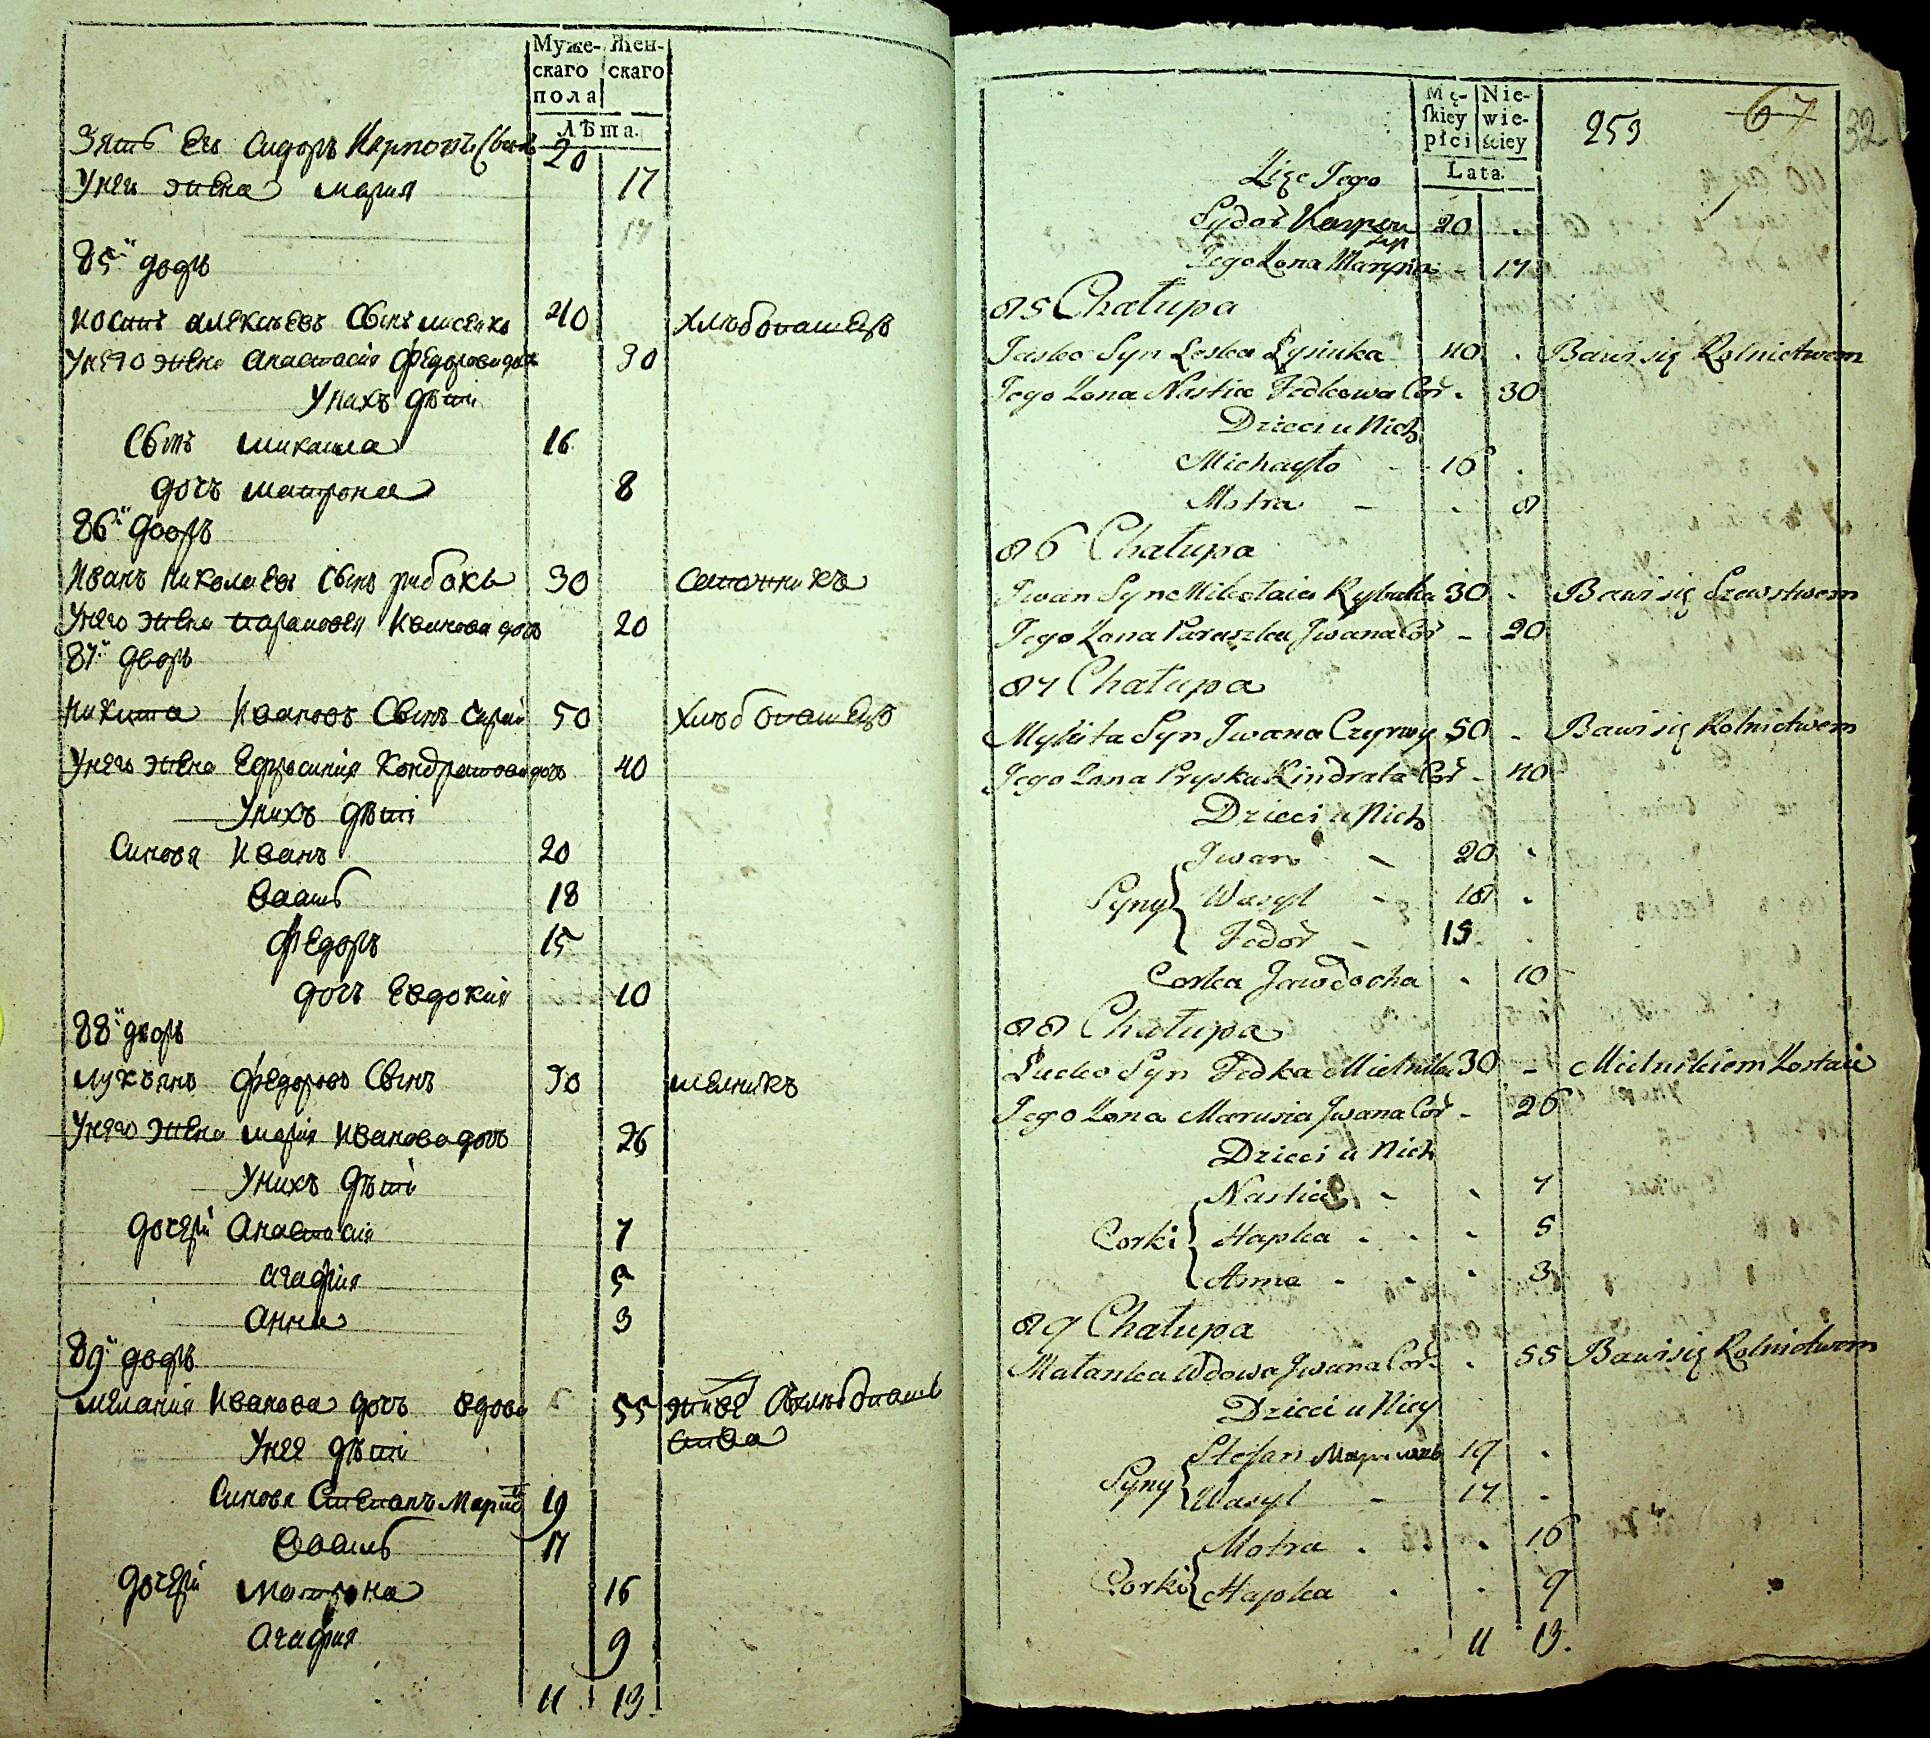 Муже- Жен-
скаго скаго
пола
Лѣта.
Зять Его Сидоръ Карповъ Сынъ 20
Унеи жена мария 17
17
85й дворъ
Иосипъ алексѣевъ Сынъ лисенко 40 хлѣбопашецъ
Унего жена анастасія федорова дочь 30
Унихъ дѣти
Сынъ михаила 16
дочь матрона 8
86й дворъ
Иванъ николаевъ Сынъ рибака 30 Сапожникъ
Унего жена парасковея Иванова дочь 20
87й дворъ
Никита Ивановъ Сынъ 50 хлѣбопашецъ
Унего жена Ефросиния Кондратова дочь 40
Унихъ дѣти
Синовя Иванъ 20
Василь 18
федоръ 15
дочь Евдокия 10
88й дворъ
лукъянъ федоровъ Сынъ 30 мелникъ
Унего жена мария Иванова дочь 26
Унихъ дѣти
дочери Анастасия 7
агафия 5
анна 3
89й дворъ
мелания Иванова дочь вдова 55 живе
Унея дѣти
Синовя Степанъ 19
Василь 17
дочери матрона 16
Агафия 9
11 13.
Mę- Nie-
skiey wie-
płci ściey
Lata.
253 67 32
Zięć Jego
Sydor Karpow 20 .
syn
Jego Zona Marysia - 17
85 Chałupa
Jasko Syn Leska Łysinka 40 . Bawi się Rolnictwem
Jego Zona Nastia Fedkowa Cor . 30
Dzieci u Nich
Michayło - 16 .
Motra - . 8
86 Chałupa
Jwan Syn Mikołaia Rybaka 30 - Bawi się Szewstwem
Jego Zona Paraszka Jwana Cor - 20
87 Chałupa
Mykita Syn Jwana Czyrwy 50 - Bawi się Rolnictwem
Jego Zona Pryska Kindrata Cor - 40
Dzieci u Nich
Jwan - 20 .
Syny Wasyl - 18 .
Fedor - 15 .
Corka Jawdocha . 10
88 Chałupa
Łucko Syn Fedka Mielnika 30 - Mielnikiem Zostaie
Jego Zona Marusia Jwana Cor - 26
Dzieci u Nich
Nastia - . 7
Corki Hapka . . . 5
Anna . . . 3
89 Chałupa
Małanka Wdowa Jwana Cor . 55 Bawi się Rolnictwem
Dzieci u Niey
Stefan 19 .
Syny Wasyl - 17 .
Motra . . 16
Corki Hapka . . 9
11 13.